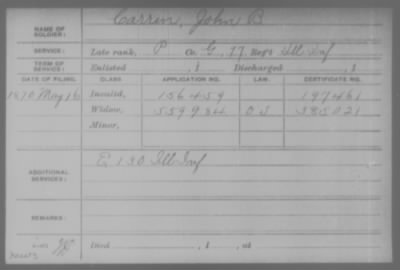 NAME OF SOLDIER: Carrin, John B
SERVICE: Late rank, P Co. G, 77 Reg't Ill Inf
TERM OF SERVICE: Enlisted , 1 Discharged , 1
DATE OF FILING. CLASS APPLICATION NO. LAW. CERTIFICATE NO.
1870 May 16 Invalid, 156459 197461
Widow, 559934 O S 385021
Minor,
ADDITIONAL SERVICES: E 130 Ill Inf
REMARKS:
Died , 1 , at